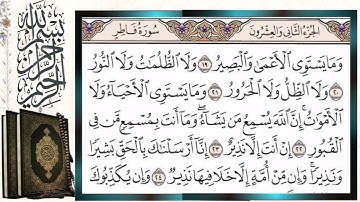 الجزء الثاني والعشرون
سورة فاطر
وَمَا يَسْتَوِى الْأَعْمَىٰ وَالْبَصِيرُ ١٩ وَلَا الظُّلُمَاتُ وَلَا النُّورُ
٢٠ وَلَا الظِّلُّ وَلَا الْحَرُورُ ٢١ وَمَا يَسْتَوِى الْأَحْيَاءُ وَلَا
الْأَمْوَاتُ إِنَّ اللَّهَ يُسْمِعُ مَن يَشَاءُ وَمَا أَنتَ بِمُسْمِعٍ مَّن فِى
الْقُبُورِ ٢٢ إِنْ أَنتَ إِلَّا نَذِيرٌ ٢٣ إِنَّا أَرْسَلْنَاكَ بِالْحَقِّ بَشِيرًا
وَنَذِيرًا وَإِن مِّنْ أُمَّةٍ إِلَّا خَلَا فِيهَا نَذِيرٌ ٢٤ وَإِن يُكَذِّبُوكَ
بسم الله الرحمن الرحيم